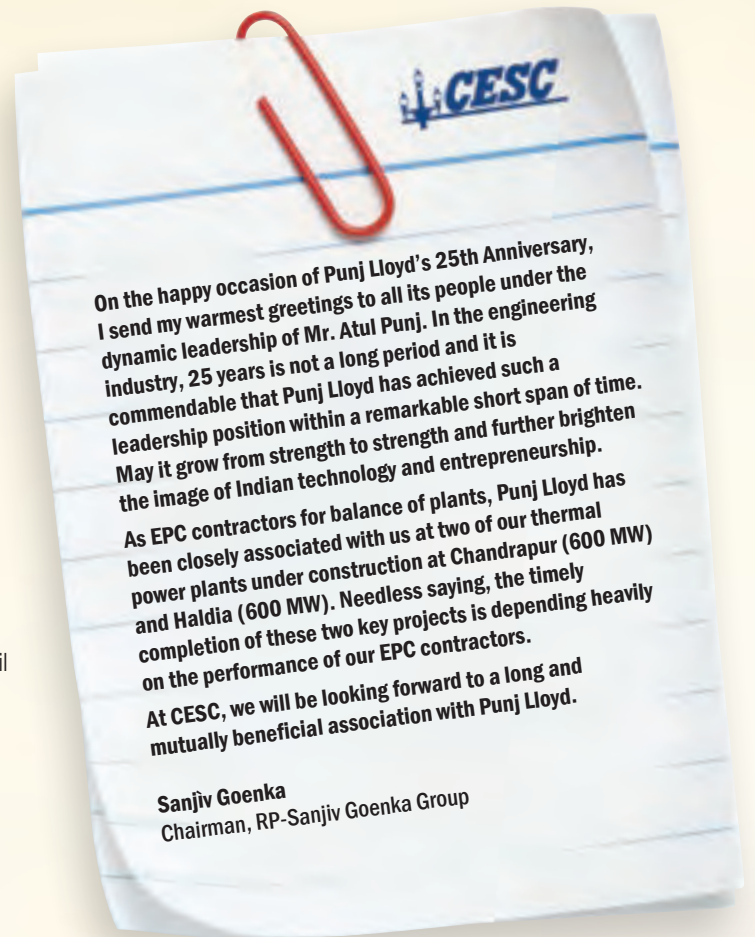 CESC
On the happy occasion of Punj Lloyd's 25th Anniversary,
I send my warmest greetings to all its people under the
dynamic leadership of Mr. Atul Punj. In the engineering
industry, 25 years is not a long period and it is
commendable that Punj Lloyd has achieved such a
leadership position within a remarkable short span of time.
May it grow from strength to strength and further brighten
the image of Indian technology and entrepreneurship.
As EPC contractors for balance of plants, Punj Lloyd has
been closely associated with us at two of our thermal
power plants under construction at Chandrapur (600 MW)
and Haldia (600 MW). Needless saying, the timely
completion of these two key projects is depending heavily
on the performance of our EPC contractors.
At CESC, we will be looking forward to a long and
mutually beneficial association with Punj Lloyd.
Sanjiv Goenka
Chairman, RP-Sanjiv Goenka Group